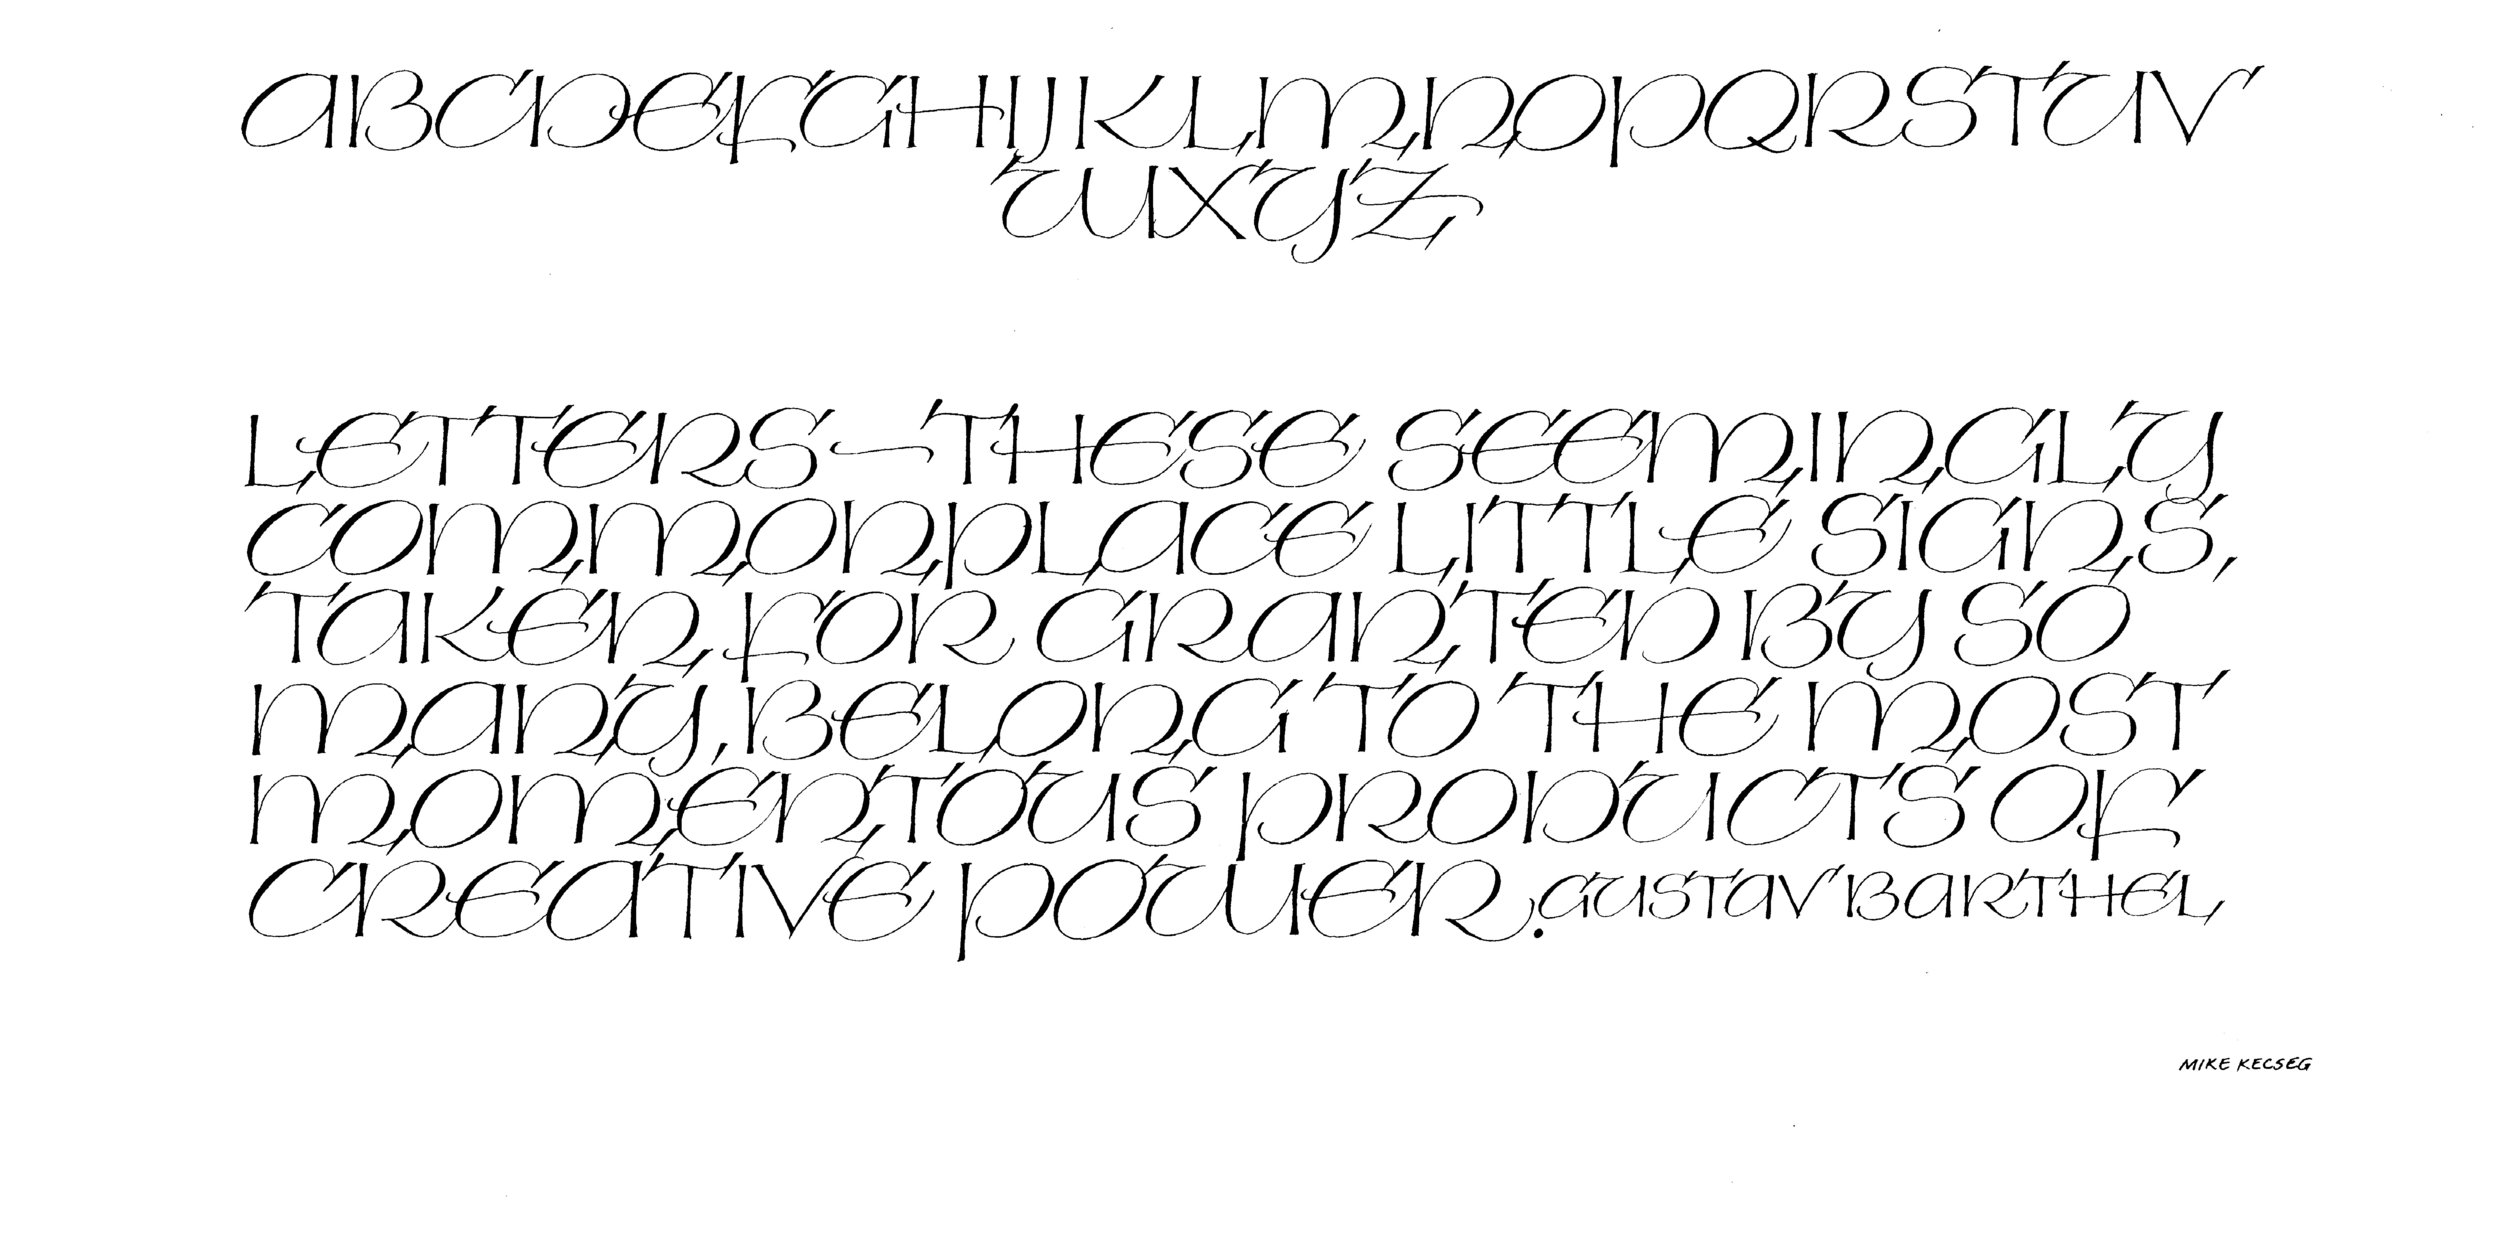 ABCDEFGHIJKLMNOPQRSTUV
WXYZ
LETTERS – THESE SEEMINGLY
COMMONPLACE LITTLE SIGNS,
TAKEN FOR GRANTED BY SO
MANY, BELONG TO THE MOST
MOMENTOUS PRODUCTS OF
CREATIVE POWER. GUSTAV BARTHEL
MIKE KECSEG